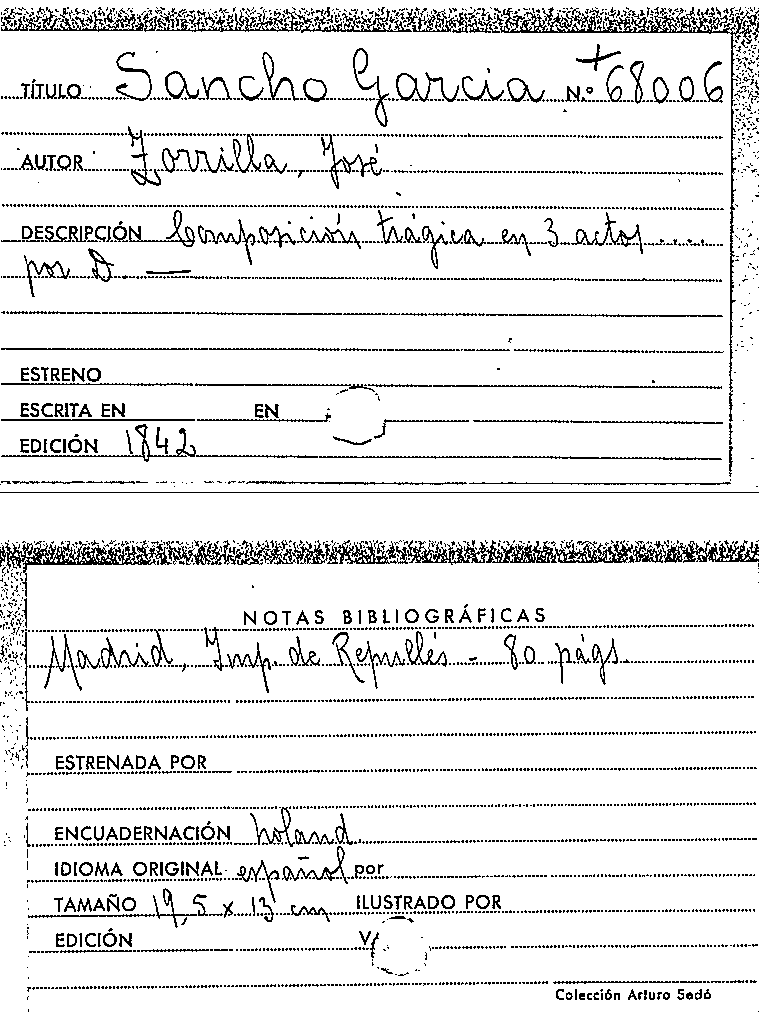 TÍTULO Sancho Garcia N.º +68006
AUTOR Zorrilla, José
DESCRIPCIÓN Composición trágica en 3 actos ....
por D. —
ESTRENO
ESCRITA EN EN
EDICIÓN 1842
NOTAS BIBLIOGRÁFICAS
Madrid, Imp. de Repullés - 80 págs.
ESTRENADA POR
ENCUADERNACIÓN holand.
IDIOMA ORIGINAL español por
TAMAÑO 19,5 x 13 cm ILUSTRADO POR
EDICIÓN V/
Colección Arturo Sedó